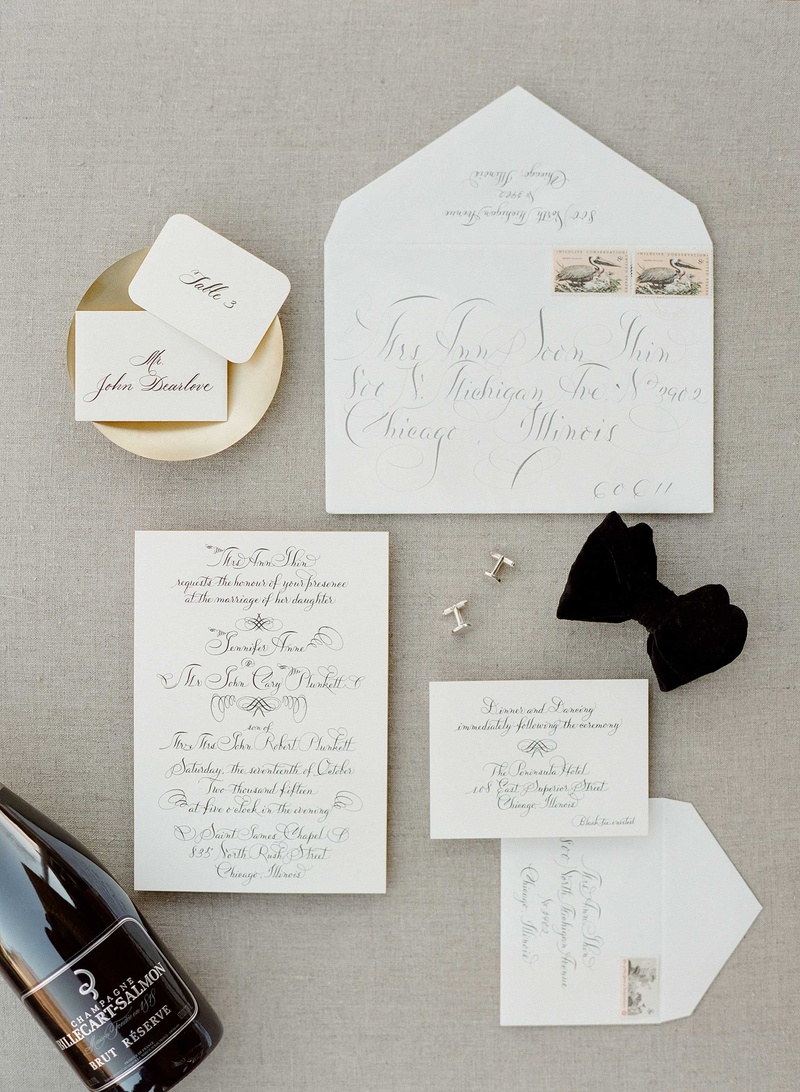 Chicago, Illinois
Nº 2902
800 North Michigan Avenue
WILDLIFE CONSERVATION
WILDLIFE CONSERVATION
Mrs Ann Soon Shin
800 N. Michigan Ave. Nº 2902
Chicago, Illinois
60611
Table 3
Mr.
John Dearlove
Mrs Ann Shin
requests the honour of your presence
at the marriage of her daughter
Jennifer Anne
to
Mr John Cary Plunkett
son of
Mr & Mrs John Robert Plunkett
Saturday, the seventeenth of October
Two thousand fifteen
at five o'clock in the evening
Saint James Chapel
835 North Rush Street
Chicago, Illinois
Dinner and Dancing
immediately following the ceremony
The Peninsula Hotel
108 East Superior Street
Chicago, Illinois
Black tie invited
Mrs Ann Shin
800 North Michigan Avenue
Nº 2902
Chicago, Illinois
CHAMPAGNE
BILLECART-SALMON
BRUT RÉSERVE